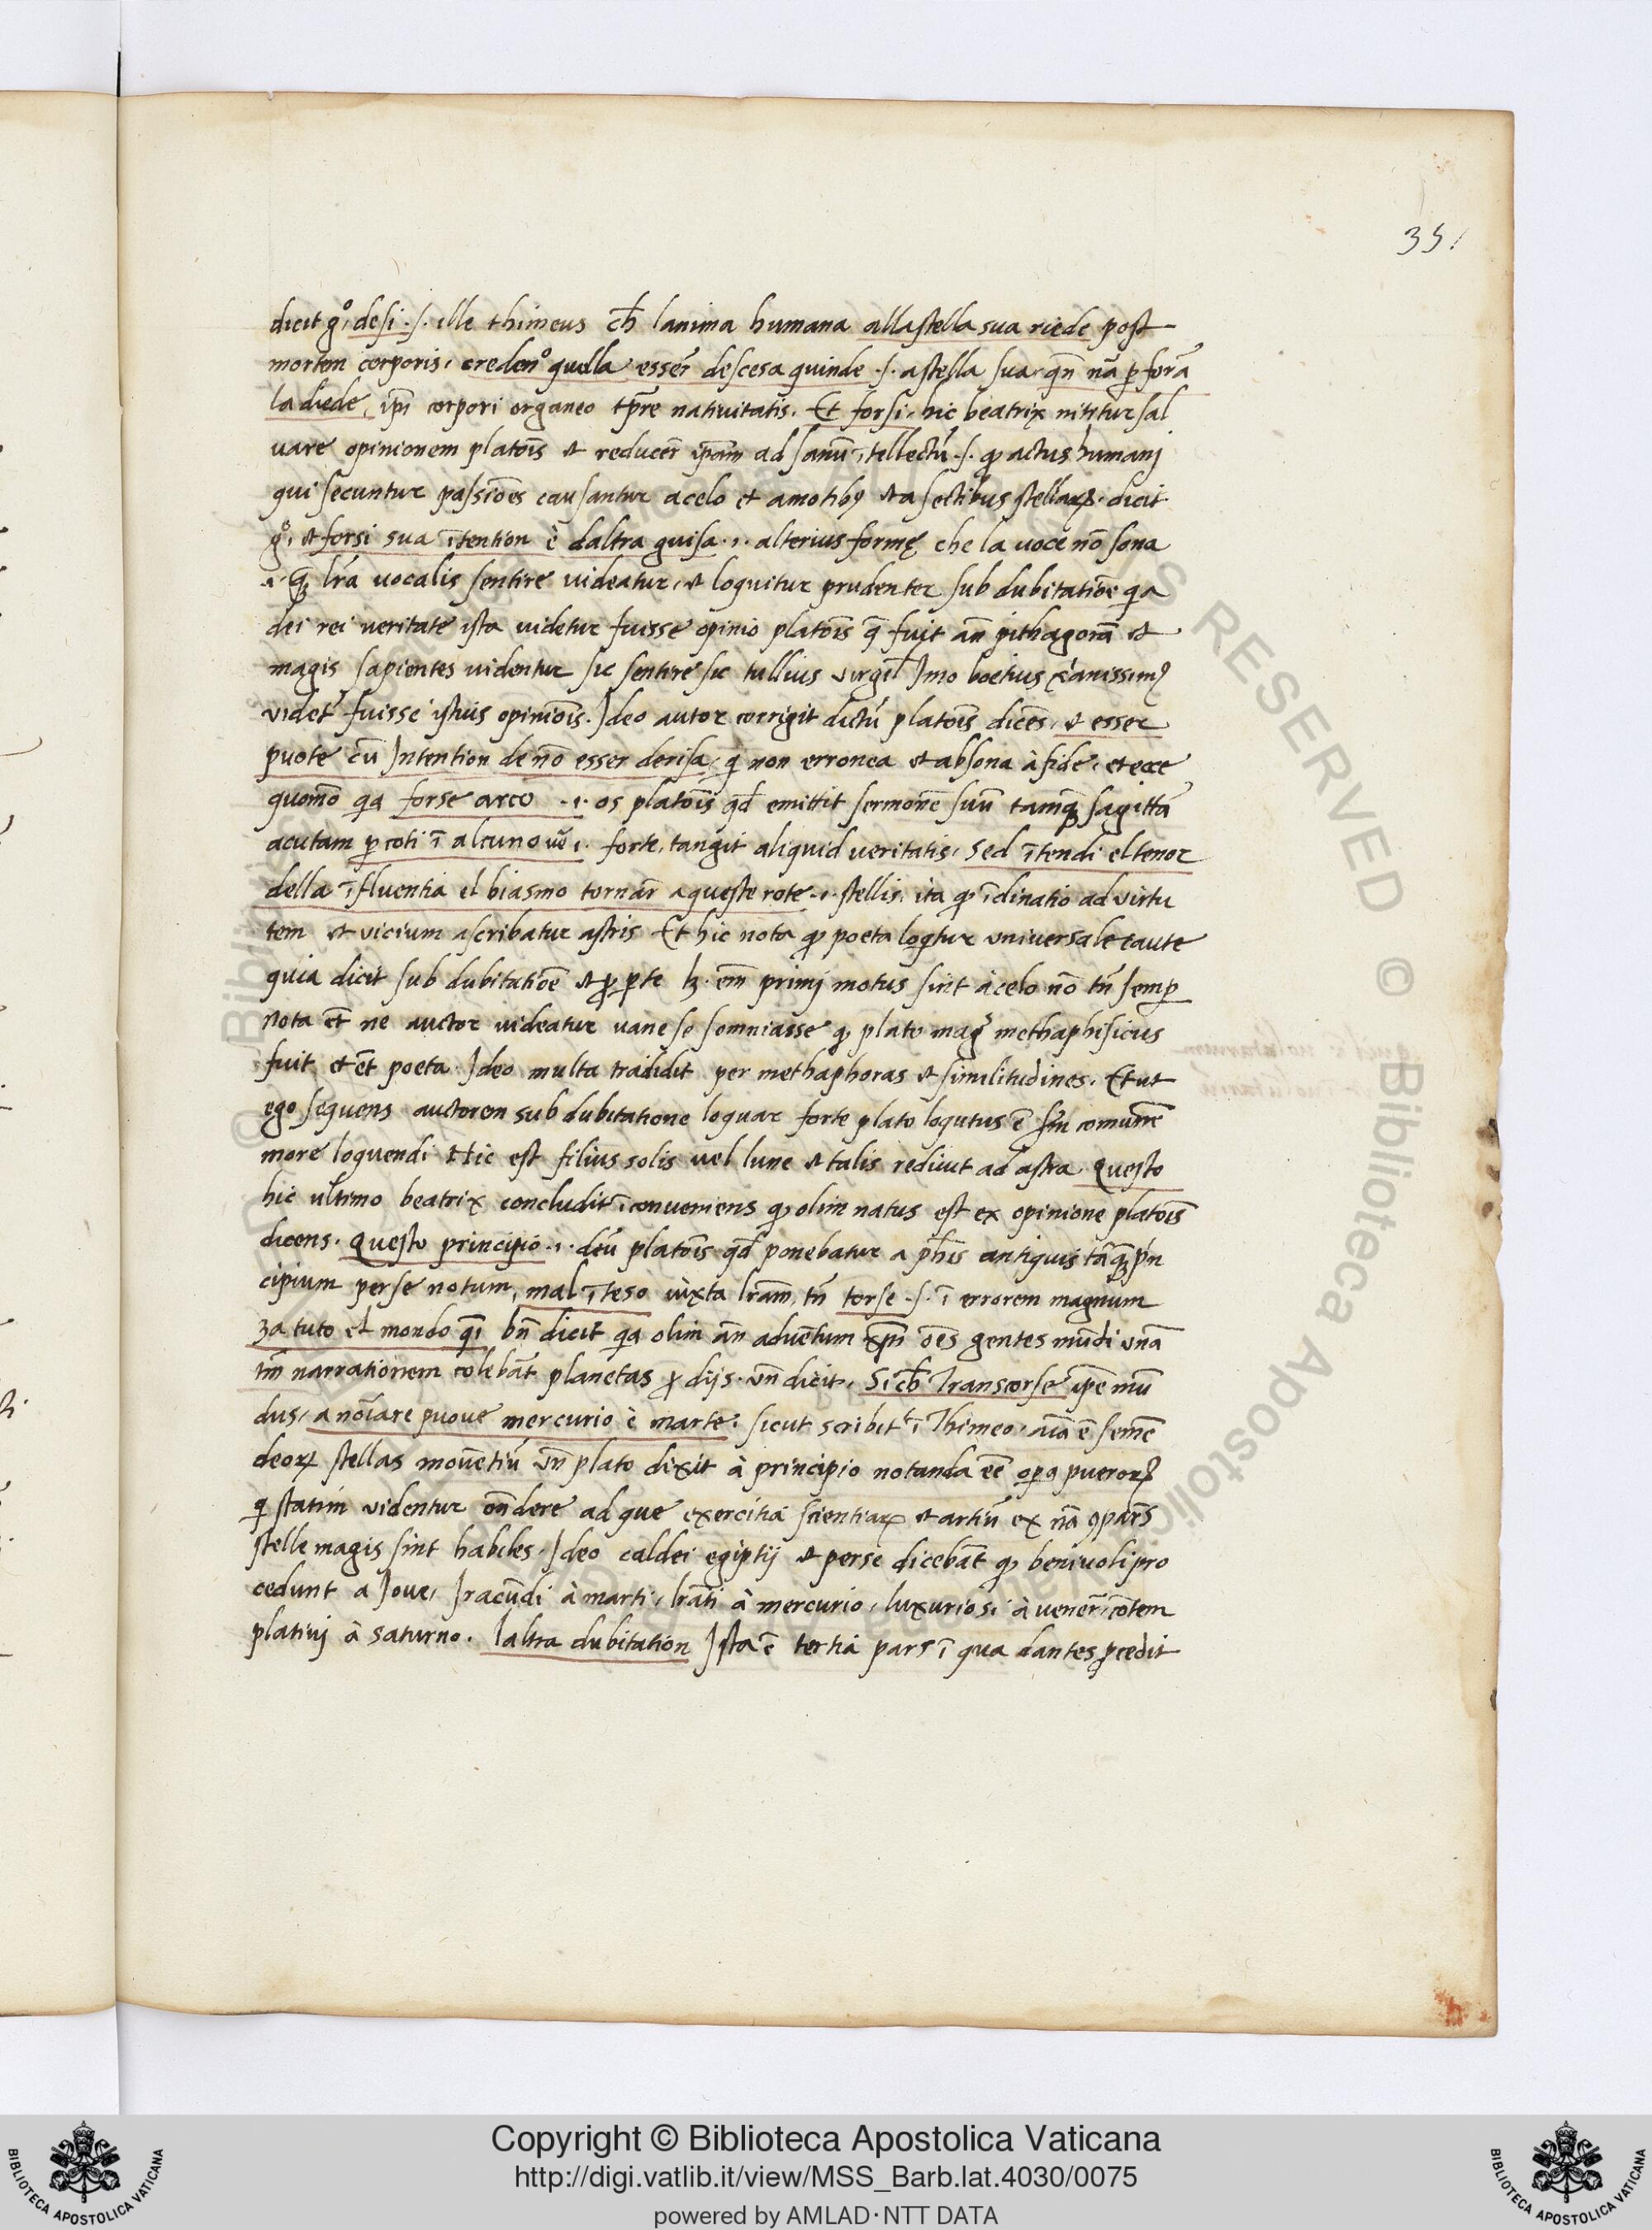 35
dicit gº, desi .s. ille thimeus ch lanima humana alla stella sua riede post
mortem corporis, credenº quella esser descesa quinde .s. astella sua qn̄ nā p forā
la diede, ipī corpori organeo tp̄re nativitatis. Et forsi, hic beatrix nititur sal
vare opinionem platoīs et reducer̄ ipam̄ ad sanū ītellectū .s. qp actus humanj
qui secuntur passiōes causantur a celo et a motibꝰ et asectibus stellarꝝ. dicit
gº, et forsi sua ītention è daltra guisa .i. alterius formę che la voce nō sona
.i. qꝫ̄ lrā vocalis sentire videatur, et loquitur prudenter sub dubitatiōe qa
dei rei veritate ista videtur fuisse opinio platoīs q̄ fuit an̄ pithagorā et
magis sapientes videntur sic sentire sic tullius virgil̄ Jmo boetius xp̄ianissimꝰ
videt̄ fuisse istius opinioīs. Jdeo autor corrigit dictū platoīs dicēs, et esser
puote cū Jntention de nō esser derisa, q non erronea et absona à fide, et ecce
quomō qa forse arco .i. os platoīs qd̄ emittit sermonē suū tamqꝫ sagittā
acutam p coti ī alcuno vō .i. forte, tangit aliquid veritatis, Sed ītendi el tenor
della īfluentia el biasmo tornar̄ a queste rote .i. stellis, ita qp īclinatio ad virtu
tem et vicium ascribatur astris Et hic nota qp poeta loqtur universale caute
quia dicit sub dubitatiōe et p pte lꝫ. em̄ primj motus sint à celo nō tn̄ semp
Nota et̄ ne auctor videatur vane se somniasse qp plato mag methaphisicus
fuit et et̄ poeta. Jdeo multa tradidit per methaphoras et similitudines. Et ut
ego sequens auctorem sub dubitatione loquar forte plato loqutus ē sm̄ comunē
more loquendi Hic est filius solis vel lune et talis rediut ad astra Questo
hic ultimo beatrix concludit īconveniens qp olim natus est ex opinione platoīs
dicens. Questo principio .i. dcū platoīs qd̄ ponebatur a phīs antiquis tāqꝫ pn
cipium per se notum, mal īteso iuxta lrām, tn̄ torse .s. ī errorem magnum
za tuto el mondo qī bn̄ dicit qa olim an̄ adventum xpī oēs gentes mūdi unā
tm̄ narrationem colebāt planetas p dijs. Vn̄ dicit, Si cħ Transcorse ipē mū
dus, a nōiare puove mercurio è marte. sicut scribit ī Thimeo, aīa ē semē
deorꝝ stellas moventiū Vn̄ plato dixit à principio notanda eē opa puerorꝝ
q statim videntur on̄dere ad que exercitia scientiarꝝ et artiū ex nā 9parīs
stelle magis sint habiles. Jdeo caldei egiptij et perse dicebāt qp benivoli pro
cedunt a Jove, Jracūdi à marti, lrāti à mercurio, luxuriosi à vener̄, cōtem
plativj à saturno. laltra dubitation Jsta ē tertia pars ī qua dantes pcedit
Copyright © Biblioteca Apostolica Vaticana
http://digi.vatlib.it/view/MSS_Barb.lat.4030/0075
powered by AMLAD·NTT DATA